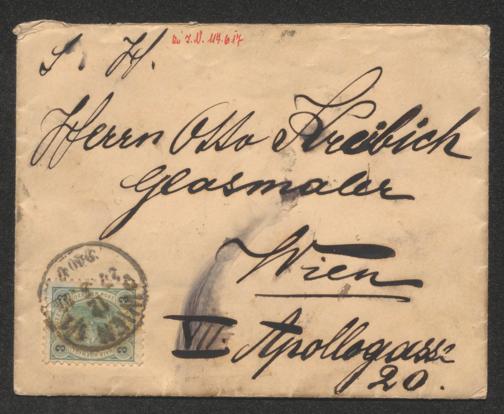 S. H.
Herrn Otto Kreibich
Glasmaler
Wien
VII. Apollogasse
20.
WIEN
3 3